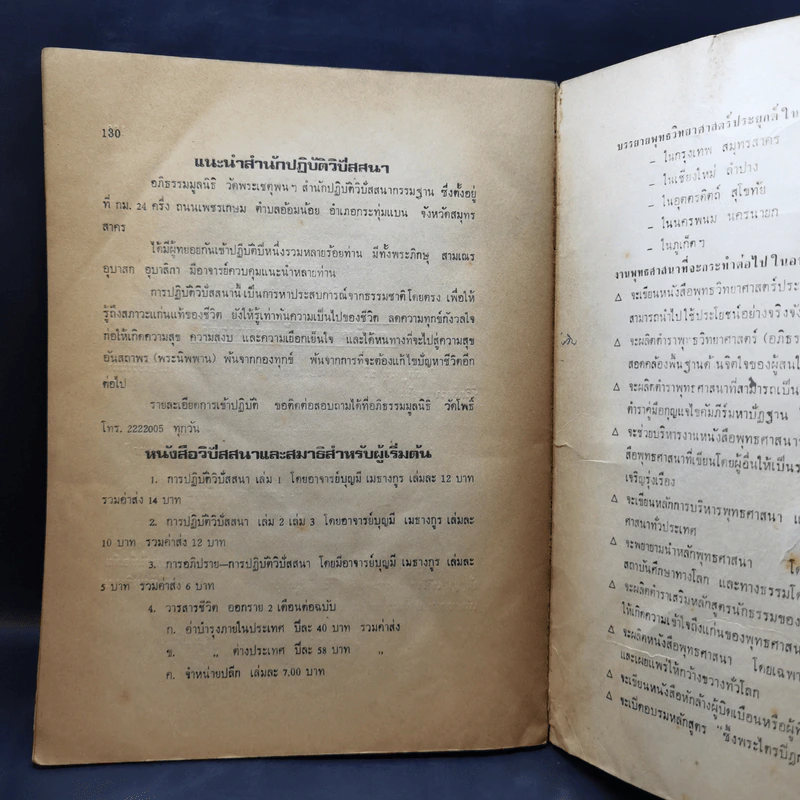 130
แนะนำสำนักปฏิบัติวิปัสสนา
อภิธรรมมูลนิธิ วัดพระเชตุพนฯ สำนักปฏิบัติวิปัสสนากรรมฐาน ซึ่งตั้งอยู่
ที่ กม. 24 ครึ่ง ถนนเพชรเกษม ตำบลอ้อมน้อย อำเภอกระทุ่มแบน จังหวัดสมุทร
สาคร
ได้มีผู้ทยอยกันเข้าปฏิบัติปีหนึ่งรวมหลายร้อยท่าน มีทั้งพระภิกษุ สามเณร
อุบาสก อุบาสิกา มีอาจารย์ควบคุมแนะนำหลายท่าน
การปฏิบัติวิปัสสนานี้เป็นการหาประสบการณ์จากธรรมชาติโดยตรง เพื่อให้
รู้ถึงสภาวะแก่นแท้ของชีวิต ยังให้รู้เท่าทันความเป็นไปของชีวิต ลดความทุกข์กังวลใจ
ก่อให้เกิดความสุข ความสงบ และความเยือกเย็นใจ และได้หนทางที่จะไปสู่ความสุข
อันสถาพร (พระนิพพาน) พ้นจากกองทุกข์ พ้นจากการที่จะต้องแก้ไขปัญหาชีวิตอีก
ต่อไป
รายละเอียดการเข้าปฏิบัติ ขอติดต่อสอบถามได้ที่อภิธรรมมูลนิธิ วัดโพธิ์
โทร. 2222005 ทุกวัน
หนังสือวิปัสสนาและสมาธิสำหรับผู้เริ่มต้น
1. การปฏิบัติวิปัสสนา เล่ม 1 โดยอาจารย์บุญมี เมธางกูร เล่มละ 12 บาท
รวมค่าส่ง 14 บาท
2. การปฏิบัติวิปัสสนา เล่ม 2 เล่ม 3 โดยอาจารย์บุญมี เมธางกูร เล่มละ
10 บาท รวมค่าส่ง 12 บาท
3. การอภิปราย—การปฏิบัติวิปัสสนา โดยมีอาจารย์บุญมี เมธางกูร เล่มละ
5 บาท รวมค่าส่ง 6 บาท
4. วารสารชีวิต ออกราย 2 เดือนต่อฉบับ
ก. ค่าบำรุงภายในประเทศ ปีละ 40 บาท รวมค่าส่ง
ข. ,, ต่างประเทศ ปีละ 58 บาท ,,
ค. จำหน่ายปลีก เล่มละ 7.00 บาท
บรรยายพุทธวิทยาศาสตร์ประยุกต์ ใน
– ในกรุงเทพ สมุทรสาคร
– ในเชียงใหม่ ลำปาง
– ในอุตตรดิตถ์ สุโขทัย
– ในนครพนม นครนายก
– ในภูเก็ตฯ
งานพุทธศาสนาที่จะกระทำต่อไป ในอน
△ จะเขียนหนังสือพุทธวิทยาศาสตร์ประ
สามารถนำไปใช้ ประโยชน์อย่างจริงจัง
△ จะผลิตตำราพุทธวิทยาศาสตร์ (อภิธร
สอดคล้องพื้นฐานด้นจิตใจของผู้สนใ
△ จะผลิตตำราพุทธศาสนาที่สามารถเป็น
ตำราคู่มือกุญแจไขคัมภีร์มหาปัฏฐาน
△ จะช่วยบริหารงานหนังสือพุทธศาสนา
สือพุทธศาสนาที่เขียนโดยผู้อื่นให้เป็น
เจริญรุ่งเรือง
△ จะเขียนหลักการบริหารพุทธศาสนา
ศาสนาทั่วประเทศ
△ จะพยายามนำหลักพุทธศาสนา โด
สถาบันศึกษาทางโลก และทางธรรมโด
△ จะผลิตตำราเสริมหลักสูตรนักธรรมของ
ให้เกิดความเข้าใจถึงแก่นของพุทธศาสน
△ จะผลิตหนังสือพุทธศาสนา โดยเฉพา
และเผยแพร่ให้กว้างขวางทั่วโลก
△ จะเขียนหนังสือหักล้างผู้บิดเบือนหรือผู้ที
△ จะเปิดอบรมหลักสูตร "ซึ้งพระไตรปิฎก